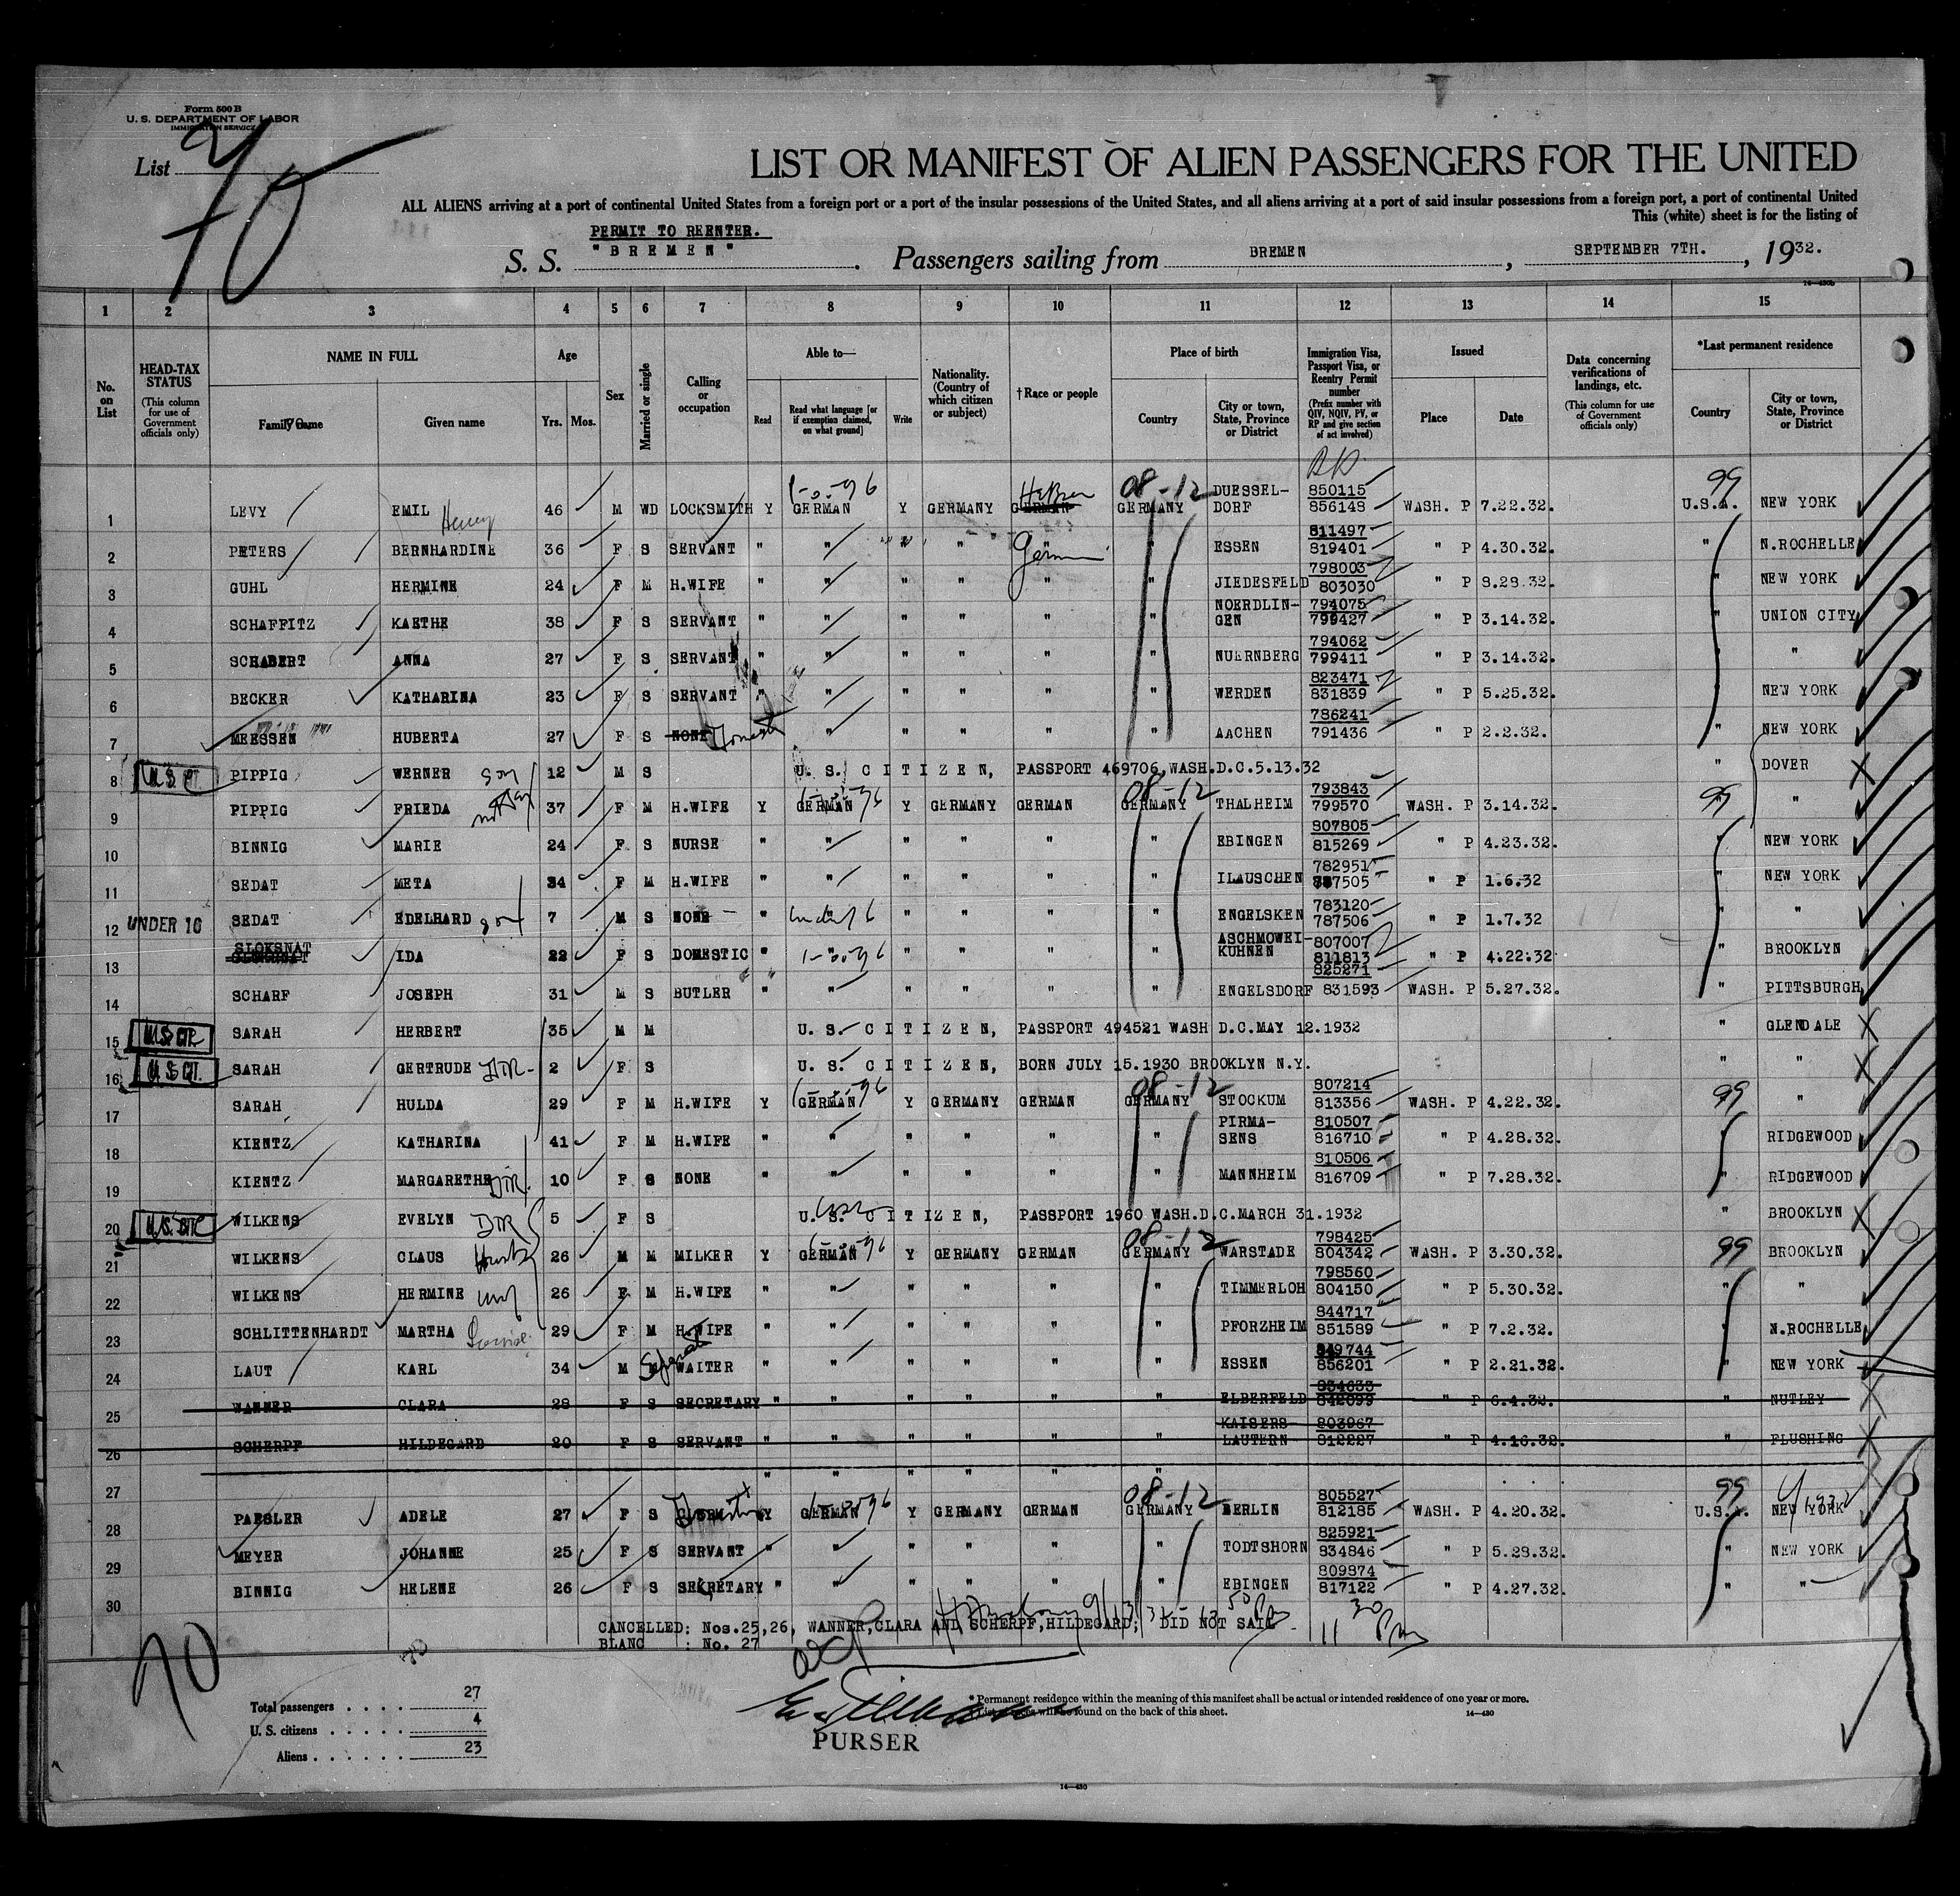 Form 500 B
U. S. DEPARTMENT OF LABOR
IMMIGRATION SERVICE
List 70
LIST OR MANIFEST OF ALIEN PASSENGERS FOR THE UNITED
ALL ALIENS arriving at a port of continental United States from a foreign port or a port of the insular possessions of the United States, and all aliens arriving at a port of said insular possessions from a foreign port, a port of continental United
This (white) sheet is for the listing of
PERMIT TO REENTER.
S. S. "BREMEN". Passengers sailing from BREMEN, SEPTEMBER 7TH., 1932.
1 2 3 4 5 6 7 8 9 10 11 12 13 14 15
No. on List
HEAD-TAX STATUS (This column for use of Government officials only)
NAME IN FULL Family name Given name
Age Yrs. Mos.
Sex
Married or single
Calling or occupation
Able to— Read Read what language [or if exemption claimed, on what ground] Write
Nationality. (Country of which citizen or subject)
†Race or people
Place of birth Country City or town, State, Province or District
Immigration Visa, Passport Visa, or Reentry Permit number (Prefix number with QIV, NQIV, PV, or RP and give section of act involved)
Issued Place Date
Data concerning verifications of landings, etc. (This column for use of Government officials only)
*Last permanent residence Country City or town, State, Province or District
1 LEVY EMIL Henry 46 M WD LOCKSMITH Y GERMAN Y GERMANY GERMAN Hebrew 08-12 GERMANY DUESSELDORF 850115 856148 WASH. P 7.22.32. 99 U.S.A. NEW YORK
2 PETERS BERNHARDINE 36 F S SERVANT " " " " German " ESSEN 811497 819401 " P 4.30.32. " N.ROCHELLE
3 GUHL HERMINE 24 F M H.WIFE " " " " " " JIEDESFELD 798003 803030 " P 3.28.32. " NEW YORK
4 SCHAFFITZ KAETHE 38 F S SERVANT " " " " " " NOERDLIN-GEN 794075 799427 " P 3.14.32. " UNION CITY
5 SCHABERT ANNA 27 F S SERVANT " " " " " " NUERNBERG 794062 799411 " P 3.14.32. " "
6 BECKER KATHARINA 23 F S SERVANT " " " " " " WERDEN 823471 831839 " P 5.25.32. " NEW YORK
7 MEESSEN HUBERTA 27 F S NONE Domestic " " " " " " AACHEN 786241 791436 " P 2.2.32. " NEW YORK
8 U.S. CT. PIPPIG WERNER son 12 M S U. S. CITIZEN, PASSPORT 469706,WASH.D.C.5.13.32 " DOVER
9 PIPPIG FRIEDA 37 F M H.WIFE Y GERMAN Y GERMANY GERMAN 08-12 GERMANY THALHEIM 793843 799570 WASH. P 3.14.32. 99 "
10 BINNIG MARIE 24 F S NURSE " " " " " " EBINGEN 807805 815269 " P 4.23.32. " NEW YORK
11 SEDAT META 34 F M H.WIFE " " " " " " ILAUSCHEN 782951 787505 " P 1.6.32 " NEW YORK
12 UNDER 16 SEDAT EDELHARD son 7 M S NONE " under 16 " " " " ENGELSKEN 783120 787506 " P 1.7.32 " "
13 SLOKSNAT IDA 22 F S DOMESTIC " " " " " " ASCHMOWEI-KUHNEN 807007 811813 " P 4.22.32 " BROOKLYN
14 SCHARF JOSEPH 31 M S BUTLER " " " " " " ENGELSDORF 825271 831593 WASH. P 5.27.32. " PITTSBURGH
15 U.S. CIT. SARAH HERBERT 35 M M U. S. CITIZEN, PASSPORT 494521 WASH D.C.MAY 12.1932 " GLENDALE
16 U.S. CIT. SARAH GERTRUDE DTR- 2 F S U. S. CITIZEN, BORN JULY 15.1930 BROOKLYN N.Y. " "
17 SARAH HULDA 29 F M H.WIFE Y GERMAN Y GERMANY GERMAN 08-12 GERMANY STOCKUM 807214 813356 WASH. P 4.22.32. 99 "
18 KIENTZ KATHARINA 41 F M H.WIFE " " " " " " PIRMA-SENS 810507 816710 " P 4.28.32. " RIDGEWOOD
19 KIENTZ MARGARETHE DTR. 10 F S NONE " " " " " " MANNHEIM 810506 816709 " P 7.28.32. " RIDGEWOOD
20 U.S. CIT. WILKENS EVELYN DTR 5 F S U. S. CITIZEN, PASSPORT 1960 WASH.D.C.MARCH 31.1932 " BROOKLYN
21 WILKENS CLAUS 26 M M MILKER Y GERMAN Y GERMANY GERMAN 08-12 GERMANY WARSTADE 798425 804342 WASH. P 3.30.32. 99 BROOKLYN
22 WILKENS HERMINE wife 26 F M H.WIFE " " " " " " TIMMERLOH 798560 804150 " P 5.30.32. " "
23 SCHLITTENHARDT MARTHA Louise 29 F M H.WIFE " " " " " " PFORZHEIM 844717 851589 " P 7.2.32. " N.ROCHELLE
24 LAUT KARL 34 M M WAITER " " " " " " ESSEN 849744 856201 " P 2.21.32. " NEW YORK
25 WANNER CLARA 28 F S SECRETARY " " " " " " ELBERFELD 834633 842099 " P 6.4.32. " NUTLEY
26 SCHERPF HILDEGARD 20 F S SERVANT " " " " " " KAISERS-LAUTERN 803967 812227 " P 4.16.32. " FLUSHING
27 " " " " " "
28 PAESLER ADELE 27 F S Y GERMAN Y GERMANY GERMAN 08-12 GERMANY BERLIN 805527 812185 WASH. P 4.20.32. 99 U.S.A. NEW YORK
29 MEYER JOHANNE 25 F S SERVANT " " " " " " TODTSHORN 825921 834846 " P 5.28.32. " NEW YORK
30 BINNIG HELENE 26 F S SEKRETARY " " " " " " EBINGEN 809874 817122 " P 4.27.32. " "
CANCELLED: Nos.25,26, WANNER,CLARA AND SCHERPF,HILDEGARD; DID NOT SAIL
BLANC : No. 27
70
Total passengers . . . . 27
U. S. citizens . . . . . 4
Aliens . . . . . . 23
*Permanent residence within the meaning of this manifest shall be actual or intended residence of one year or more.
will be found on the back of this sheet.
14—430
PURSER
14—430